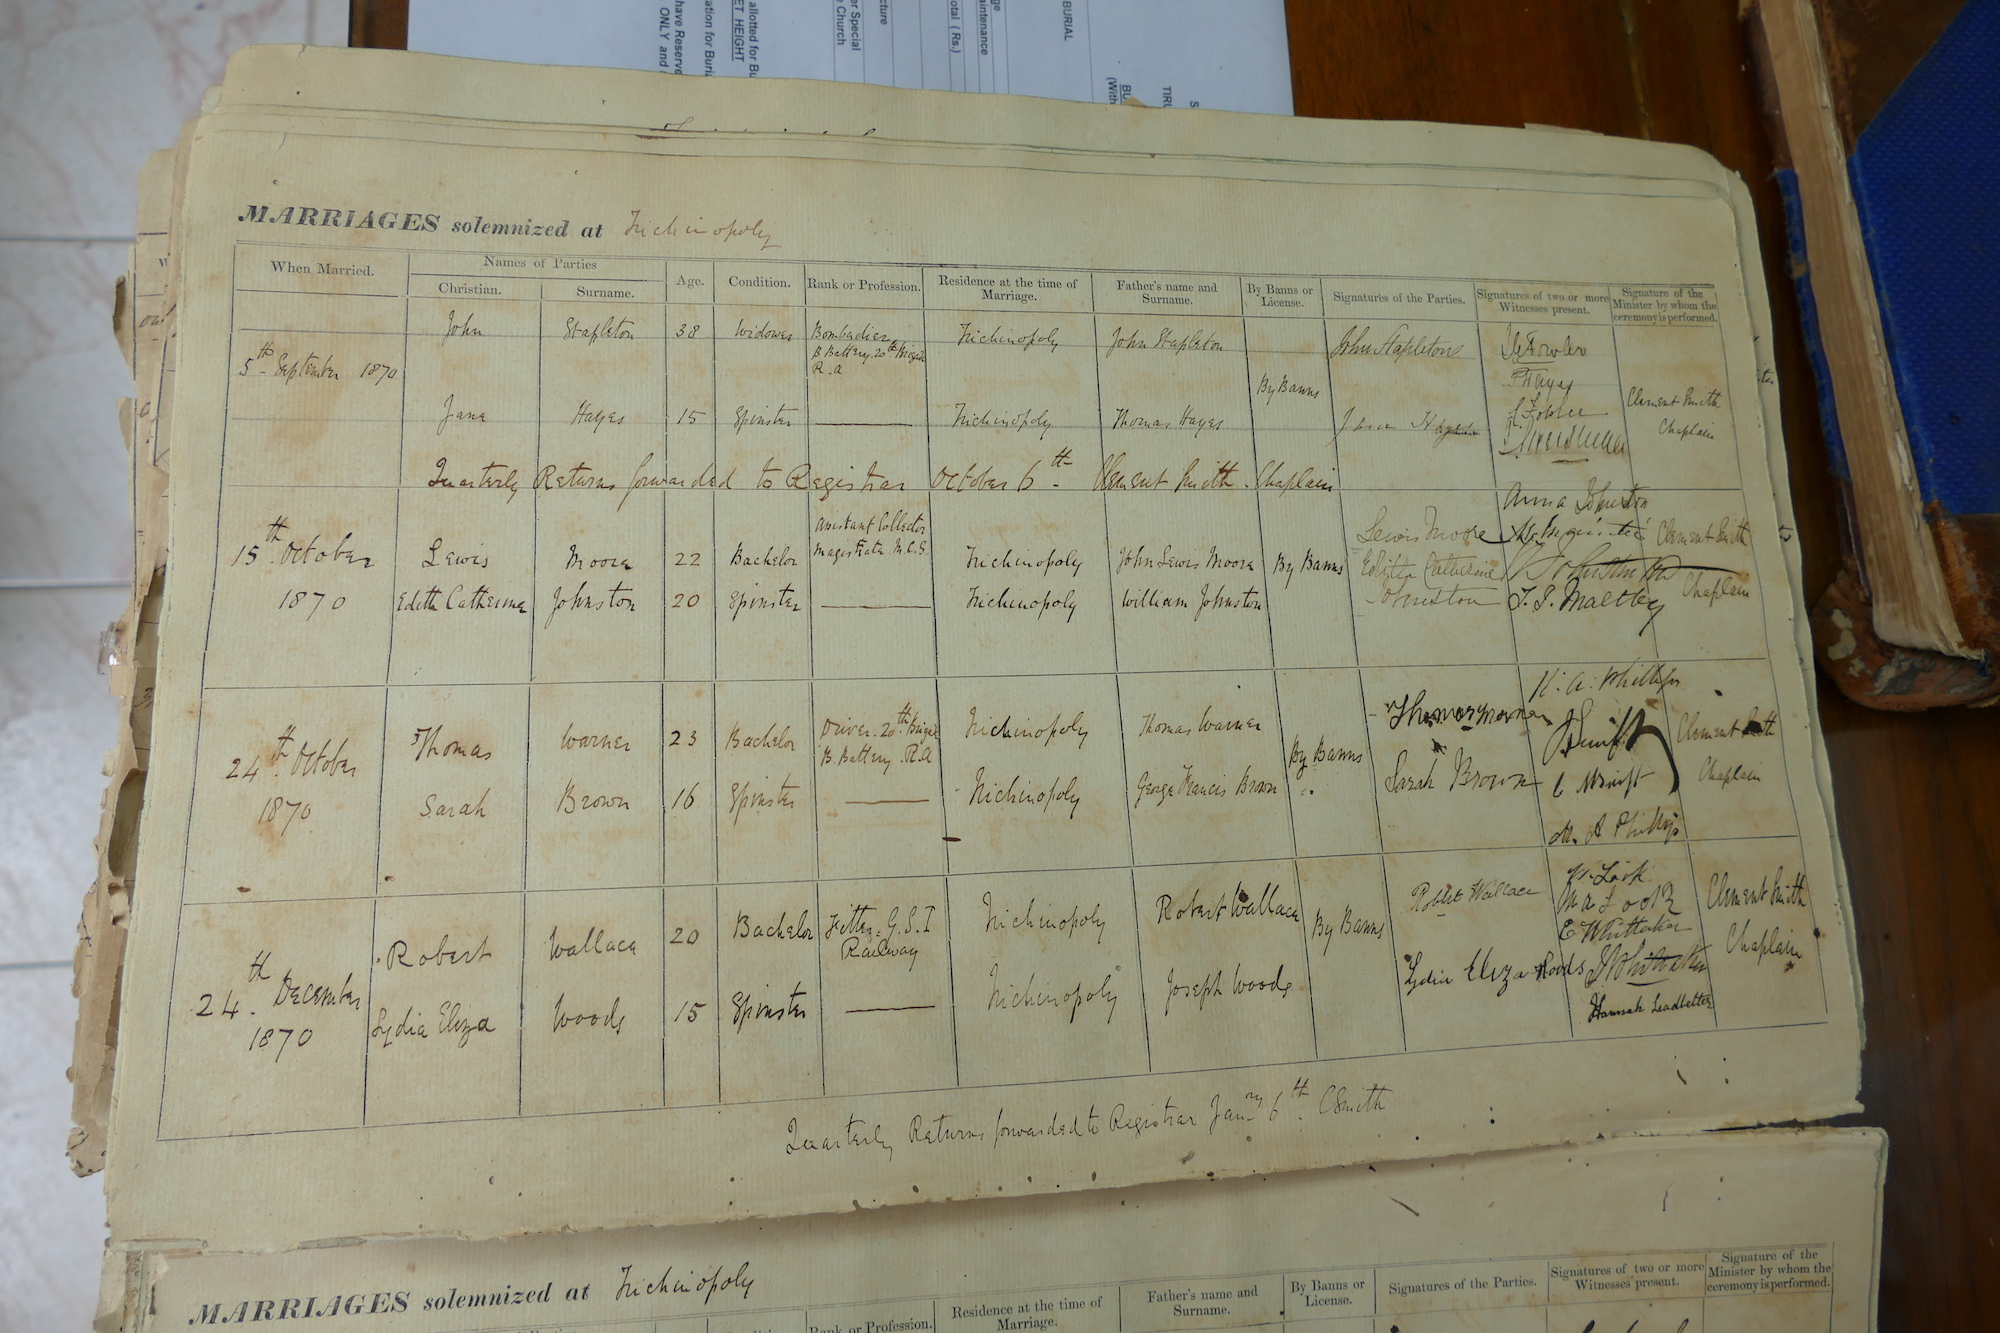 BURIAL
allotted for Bu
ET HEIGHT
have Reserve
ONLY and
ation for Buria
er Special
e Church
cture
otal (Rs.)
ge
aintenance
BU
(With
TIRU
MARRIAGES solemnized at Trichinopoly
When Married.
Names of Parties
Christian.
Surname.
Age.
Condition.
Rank or Profession.
Residence at the time of
Marriage.
Father's name and
Surname.
By Banns or
License.
Signatures of the Parties.
Signatures of two or more
Witnesses present.
Signature of the
Minister by whom the
ceremony is performed.
5th September 1870
John Stapleton 38 Widower Bombadier Trichinopoly John Stapleton John Stapleton
B Battery 20th Brigde
R.A
By Banns
Jane Hayes 15 Spinster Trichinopoly Thomas Hayes Jane Hayes
Clement Smith
Chaplain
Quarterly Returns forwarded to Registrar October 6th Clement Smith Chaplain
15th October
1870
Lewis Moore 22 Bachelor Assistant Collector
Magistrate M.C.S.
Trichinopoly John Lewis Moore By Banns Lewis Moore
Edith Catherine Johnston 20 Spinster Trichinopoly William Johnston Edith Catherine
Johnston
Anna Johnston
T. J. Maltby
Clement Smith
Chaplain
24th October
1870
Thomas Warner 23 Bachelor Driver 20th Brigde
B. Battery R.A
Trichinopoly Thomas Warner By Banns
Sarah Brown 16 Spinster Trichinopoly George Francis Brown Sarah Brown
K. A. Phillips
J Swift
C Swift
M. A Phillips
Clement Smith
Chaplain
24th December
1870
Robert Wallace 20 Bachelor Fitter G.S.I
Railway
Trichinopoly Robert Wallace By Banns Robert Wallace
Lydia Eliza Woods 15 Spinster Trichinopoly Joseph Woods Lydia Eliza Woods
E Whittaker
Hannah Leadbetter
Clement Smith
Chaplain
Quarterly Returns forwarded to Registrar Janry 6th CSmith
MARRIAGES solemnized at Trichinopoly
Rank or Profession.
Residence at the time of
Marriage.
Father's name and
Surname.
By Banns or
License.
Signatures of the Parties.
Signatures of two or more
Witnesses present.
Signature of the
Minister by whom the
ceremony is performed.